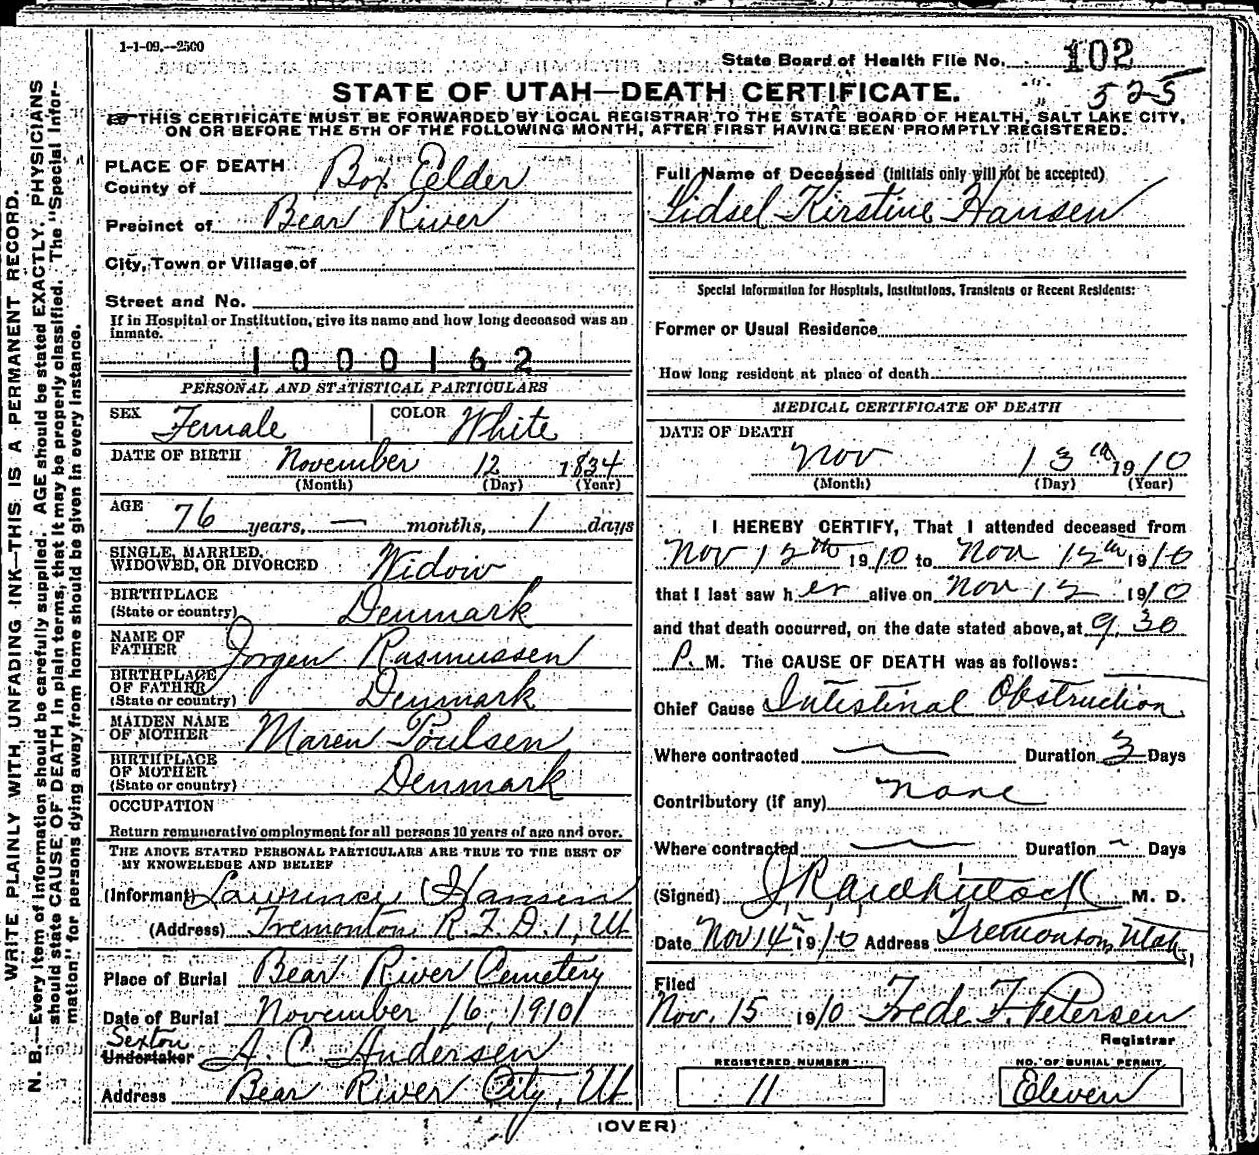 1-1-09.--2500
State Board of Health File No. 102
525
STATE OF UTAH—DEATH CERTIFICATE.
THIS CERTIFICATE MUST BE FORWARDED BY LOCAL REGISTRAR TO THE STATE BOARD OF HEALTH, SALT LAKE CITY,
ON OR BEFORE THE 5TH OF THE FOLLOWING MONTH, AFTER FIRST HAVING BEEN PROMPTLY REGISTERED.
WRITE PLAINLY WITH UNFADING INK—THIS IS A PERMANENT RECORD.
N. B.—Every item of information should be carefully supplied. AGE should be stated EXACTLY. PHYSICIANS
should state CAUSE OF DEATH in plain terms, that it may be properly classified. The "Special Infor-
mation" for persons dying away from home should be given in every instance.
PLACE OF DEATH
County of Box Elder
Precinct of Bear River
City, Town or Village of
Street and No.
If in Hospital or Institution, give its name and how long deceased was an
inmate.
1000162
PERSONAL AND STATISTICAL PARTICULARS
SEX Female COLOR White
DATE OF BIRTH November 12 1834
(Month) (Day) (Year)
AGE 76 years, — months, 1 days
SINGLE, MARRIED,
WIDOWED, OR DIVORCED Widow
BIRTHPLACE
(State or country) Denmark
NAME OF
FATHER Jorgen Rasmussen
BIRTHPLACE
OF FATHER
(State or country) Denmark
MAIDEN NAME
OF MOTHER Maren Poulsen
BIRTHPLACE
OF MOTHER
(State or country) Denmark
OCCUPATION
Return remunerative employment for all persons 10 years of age and over.
THE ABOVE STATED PERSONAL PARTICULARS ARE TRUE TO THE BEST OF
MY KNOWLEDGE AND BELIEF
(Informant) Lawrence Hansen
(Address) Tremonton R.F.D. 1, Ut
Place of Burial Bear River Cemetery
Date of Burial November 16, 1910
Sexton
Undertaker A. C. Andersen
Address Bear River City, Ut
Full Name of Deceased (initials only will not be accepted)
Sidsel Kirstine Hansen
Special Information for Hospitals, Institutions, Transients or Recent Residents:
Former or Usual Residence
How long resident at place of death
MEDICAL CERTIFICATE OF DEATH
DATE OF DEATH
Nov 13th 1910
(Month) (Day) (Year)
I HEREBY CERTIFY, That I attended deceased from
Nov 12th 1910 to Nov 12th 1910
that I last saw her alive on Nov 12 1910
and that death occurred, on the date stated above, at 9.30
P. M. The CAUSE OF DEATH was as follows:
Chief Cause Intestinal Obstruction
Where contracted Duration 3 Days
Contributory (if any) none
Where contracted Duration - Days
(Signed) M. D.
Date Nov 14th 1910 Address Tremonton, Utah
Filed
Nov. 15 1910 Frede F. Petersen
Registrar
REGISTERED NUMBER NO. OF BURIAL PERMIT
11 Eleven
(OVER)